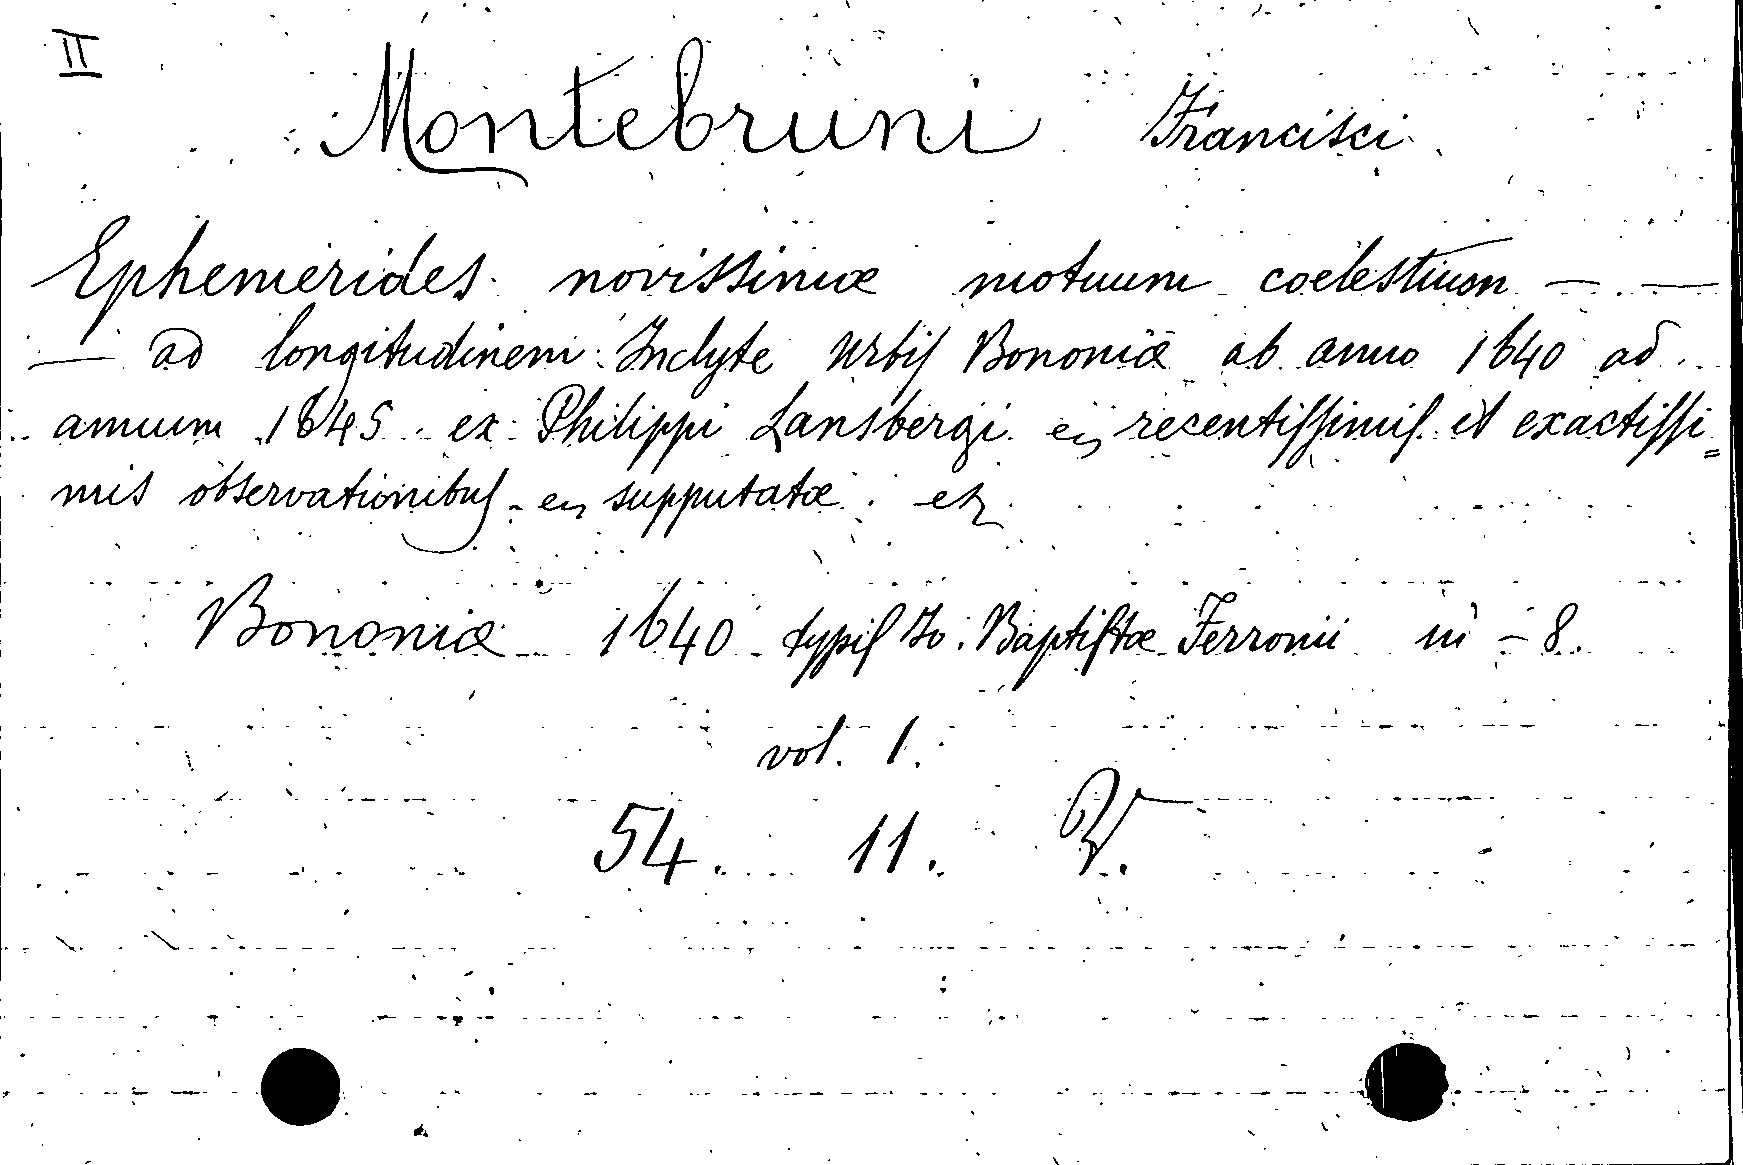 II
Montebruni Francisci
Ephemerides novissimæ motuum coelestium — —
— ad longitudinem Inclyte Urbis Bononiæ ab anno 1640 ad
annum 1645 ex Philippi Lansbergi recentissimis et exactissi=
mis observationibus supputatæ. etz
Bononiæ 1640 typis Io. Baptistæ Ferronii in-8.
vol. 1.
54. 11. V.